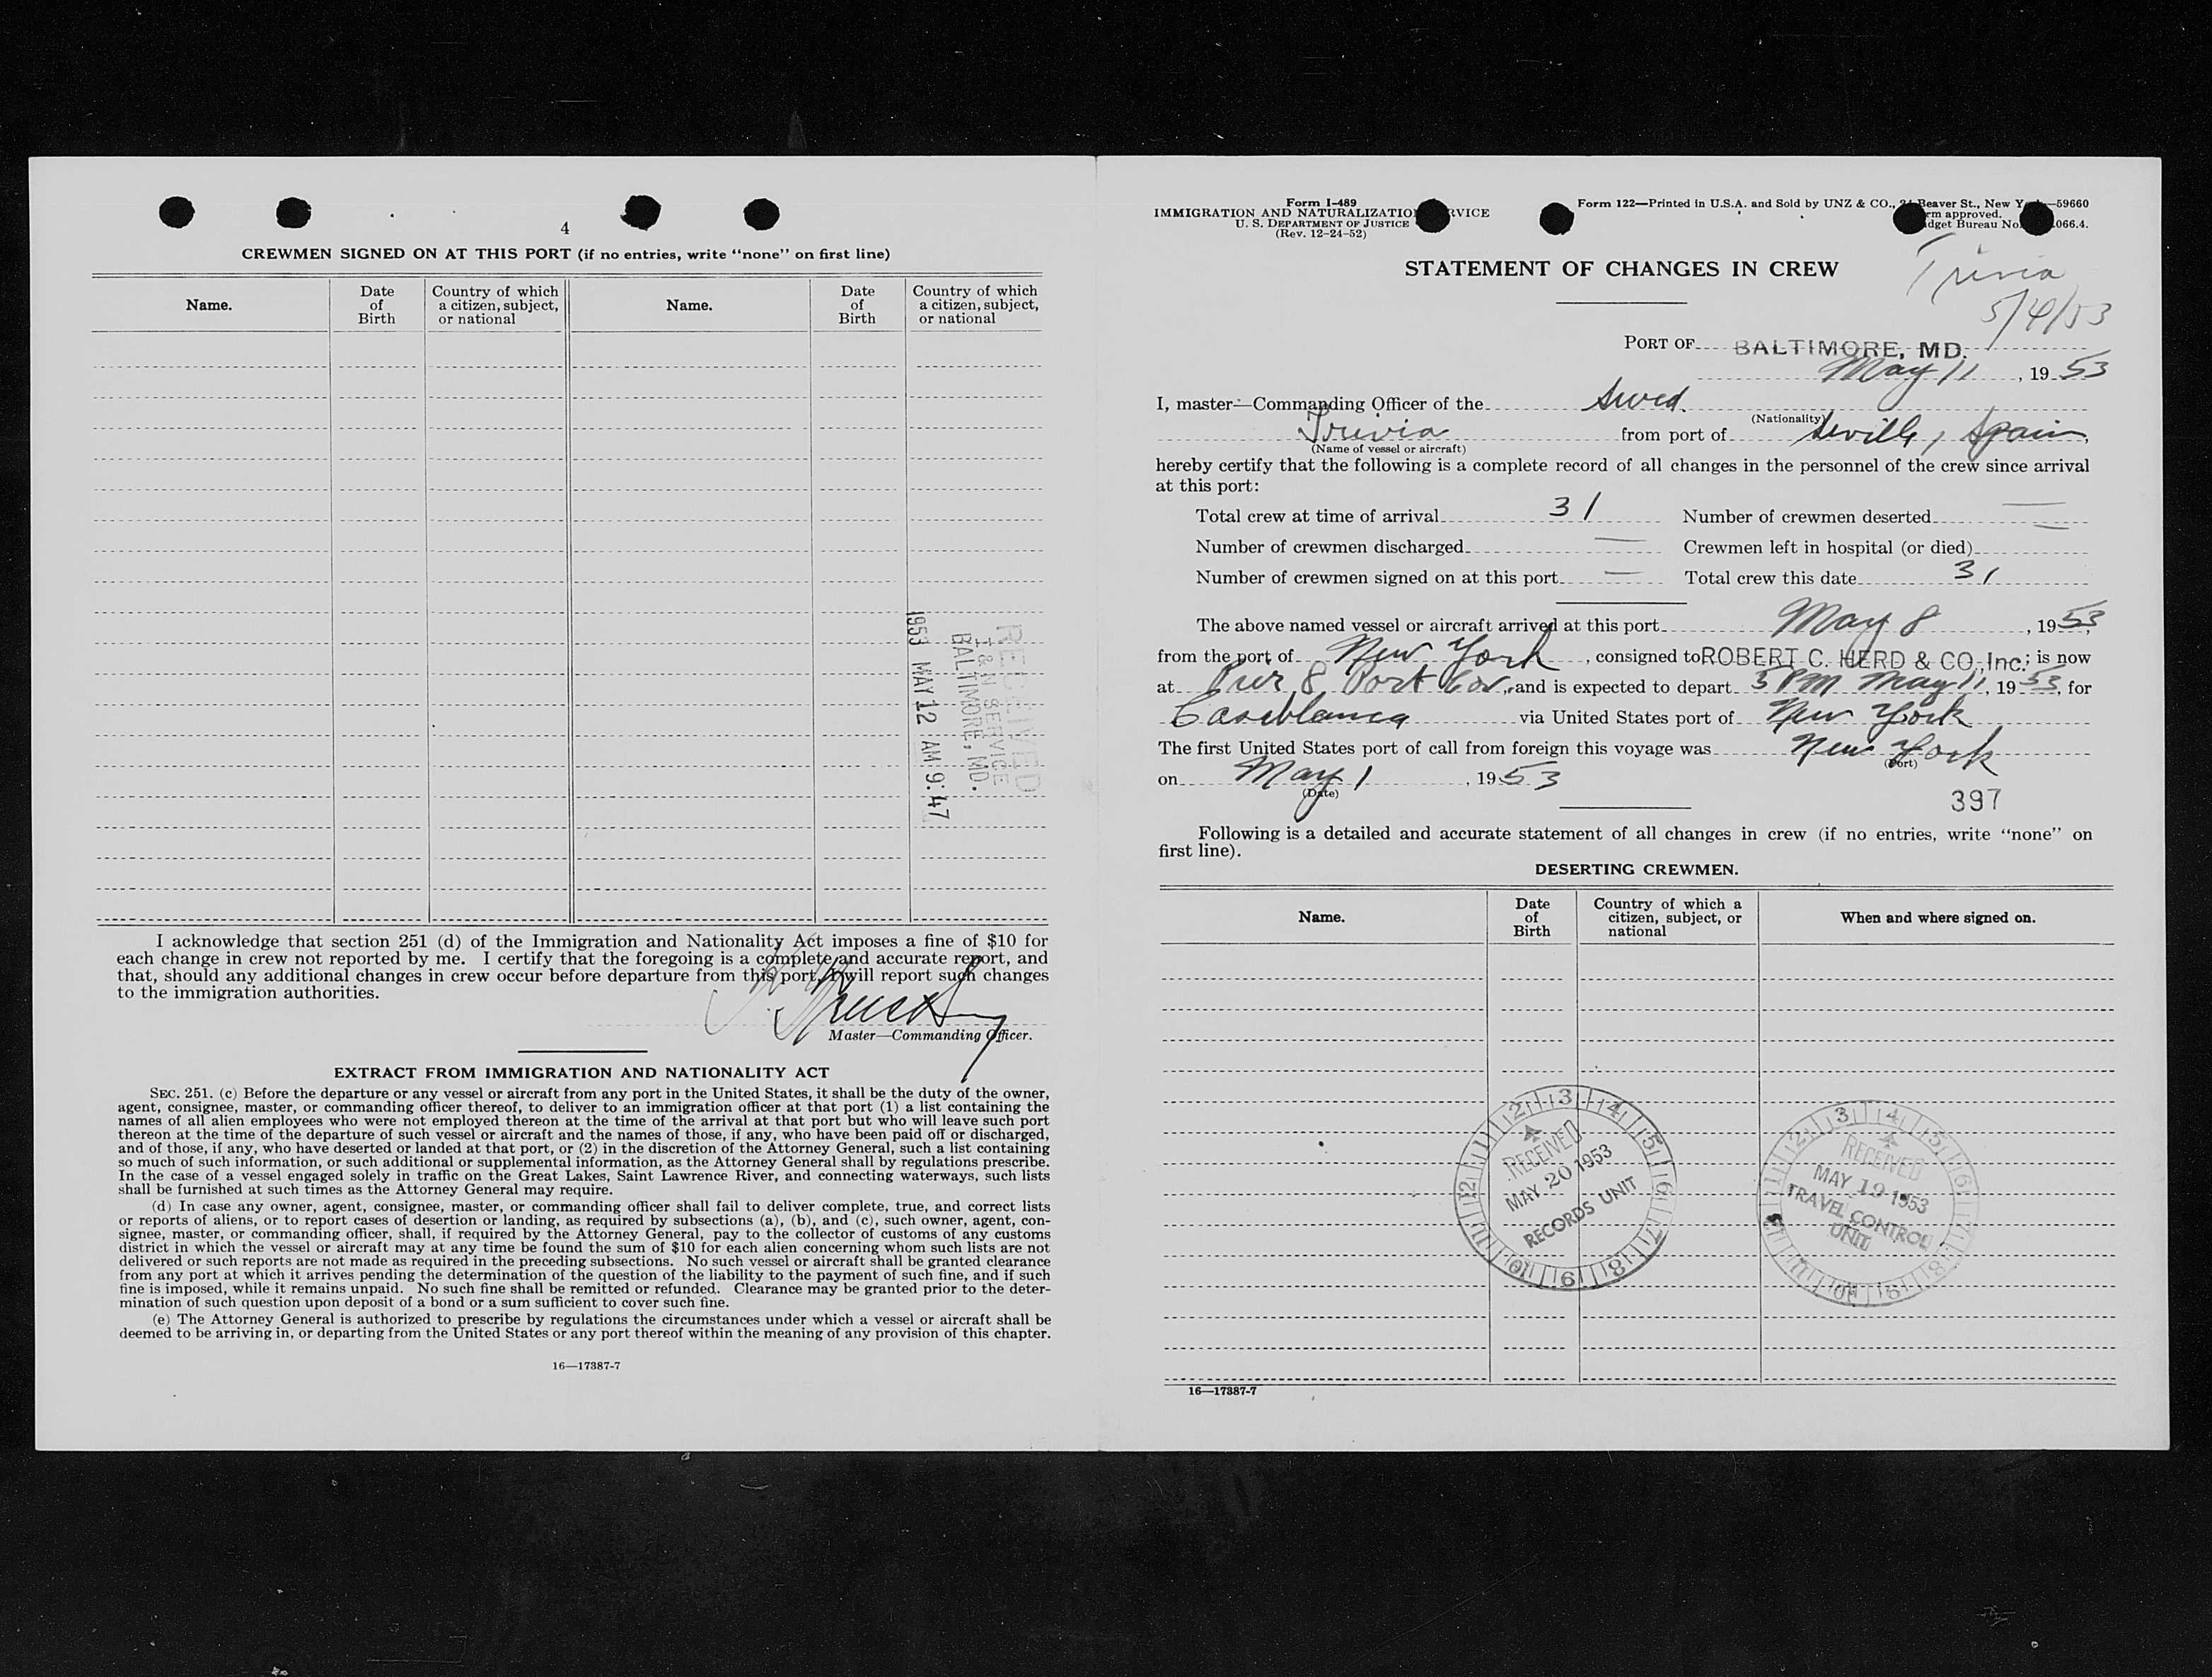 4
CREWMEN SIGNED ON AT THIS PORT (if no entries, write "none" on first line)
Name. Date of Birth Country of which a citizen, subject, or national Name. Date of Birth Country of which a citizen, subject, or national
RECEIVED
I & N SERVICE
BALTIMORE, MD.
1953 MAY 12 AM 9:47
I acknowledge that section 251 (d) of the Immigration and Nationality Act imposes a fine of $10 for
each change in crew not reported by me. I certify that the foregoing is a complete and accurate report, and
that, should any additional changes in crew occur before departure from this port, I will report such changes
to the immigration authorities.
Master—Commanding Officer.
EXTRACT FROM IMMIGRATION AND NATIONALITY ACT
SEC. 251. (c) Before the departure or any vessel or aircraft from any port in the United States, it shall be the duty of the owner,
agent, consignee, master, or commanding officer thereof, to deliver to an immigration officer at that port (1) a list containing the
names of all alien employees who were not employed thereon at the time of the arrival at that port but who will leave such port
thereon at the time of the departure of such vessel or aircraft and the names of those, if any, who have been paid off or discharged,
and of those, if any, who have deserted or landed at that port, or (2) in the discretion of the Attorney General, such a list containing
so much of such information, or such additional or supplemental information, as the Attorney General shall by regulations prescribe.
In the case of a vessel engaged solely in traffic on the Great Lakes, Saint Lawrence River, and connecting waterways, such lists
shall be furnished at such times as the Attorney General may require.
(d) In case any owner, agent, consignee, master, or commanding officer shall fail to deliver complete, true, and correct lists
or reports of aliens, or to report cases of desertion or landing, as required by subsections (a), (b), and (c), such owner, agent, con-
signee, master, or commanding officer, shall, if required by the Attorney General, pay to the collector of customs of any customs
district in which the vessel or aircraft may at any time be found the sum of $10 for each alien concerning whom such lists are not
delivered or such reports are not made as required in the preceding subsections. No such vessel or aircraft shall be granted clearance
from any port at which it arrives pending the determination of the question of the liability to the payment of such fine, and if such
fine is imposed, while it remains unpaid. No such fine shall be remitted or refunded. Clearance may be granted prior to the deter-
mination of such question upon deposit of a bond or a sum sufficient to cover such fine.
(e) The Attorney General is authorized to prescribe by regulations the circumstances under which a vessel or aircraft shall be
deemed to be arriving in, or departing from the United States or any port thereof within the meaning of any provision of this chapter.
16—17387-7
Form I-489
IMMIGRATION AND NATURALIZATION SERVICE
U. S. DEPARTMENT OF JUSTICE
(Rev. 12-24-52)
Form 122—Printed in U.S.A. and Sold by UNZ & CO., Beaver St., New Y—59660
rm approved.
dget Bureau No. 066.4.
STATEMENT OF CHANGES IN CREW
Trivia
5/4/53
PORT OF BALTIMORE, MD.
May 11, 1953
I, master—Commanding Officer of the Swed.
(Nationality)
Trivia from port of Seville, Spain,
(Name of vessel or aircraft)
hereby certify that the following is a complete record of all changes in the personnel of the crew since arrival
at this port:
Total crew at time of arrival 31 Number of crewmen deserted —
Number of crewmen discharged — Crewmen left in hospital (or died) —
Number of crewmen signed on at this port — Total crew this date 31
The above named vessel or aircraft arrived at this port May 8, 1953,
from the port of New York, consigned to ROBERT C. HERD & CO., Inc.; is now
at Pier 8 Port Cov., and is expected to depart 5 PM May 11, 1953, for
Casablanca via United States port of New York
The first United States port of call from foreign this voyage was New York
(Port)
on May 1, 1953
(Date)
397
Following is a detailed and accurate statement of all changes in crew (if no entries, write "none" on
first line).
DESERTING CREWMEN.
Name. Date of Birth Country of which a citizen, subject, or national When and where signed on.
RECEIVED
MAY 20 1953
RECORDS UNIT
1 2 3 4 5 6 7 8 9 10 11 12
RECEIVED
MAY 19 1953
TRAVEL CONTROL
UNIT
16—17387-7